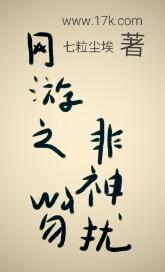 www.17k.com
七粒尘埃 著
网游之
非神扰